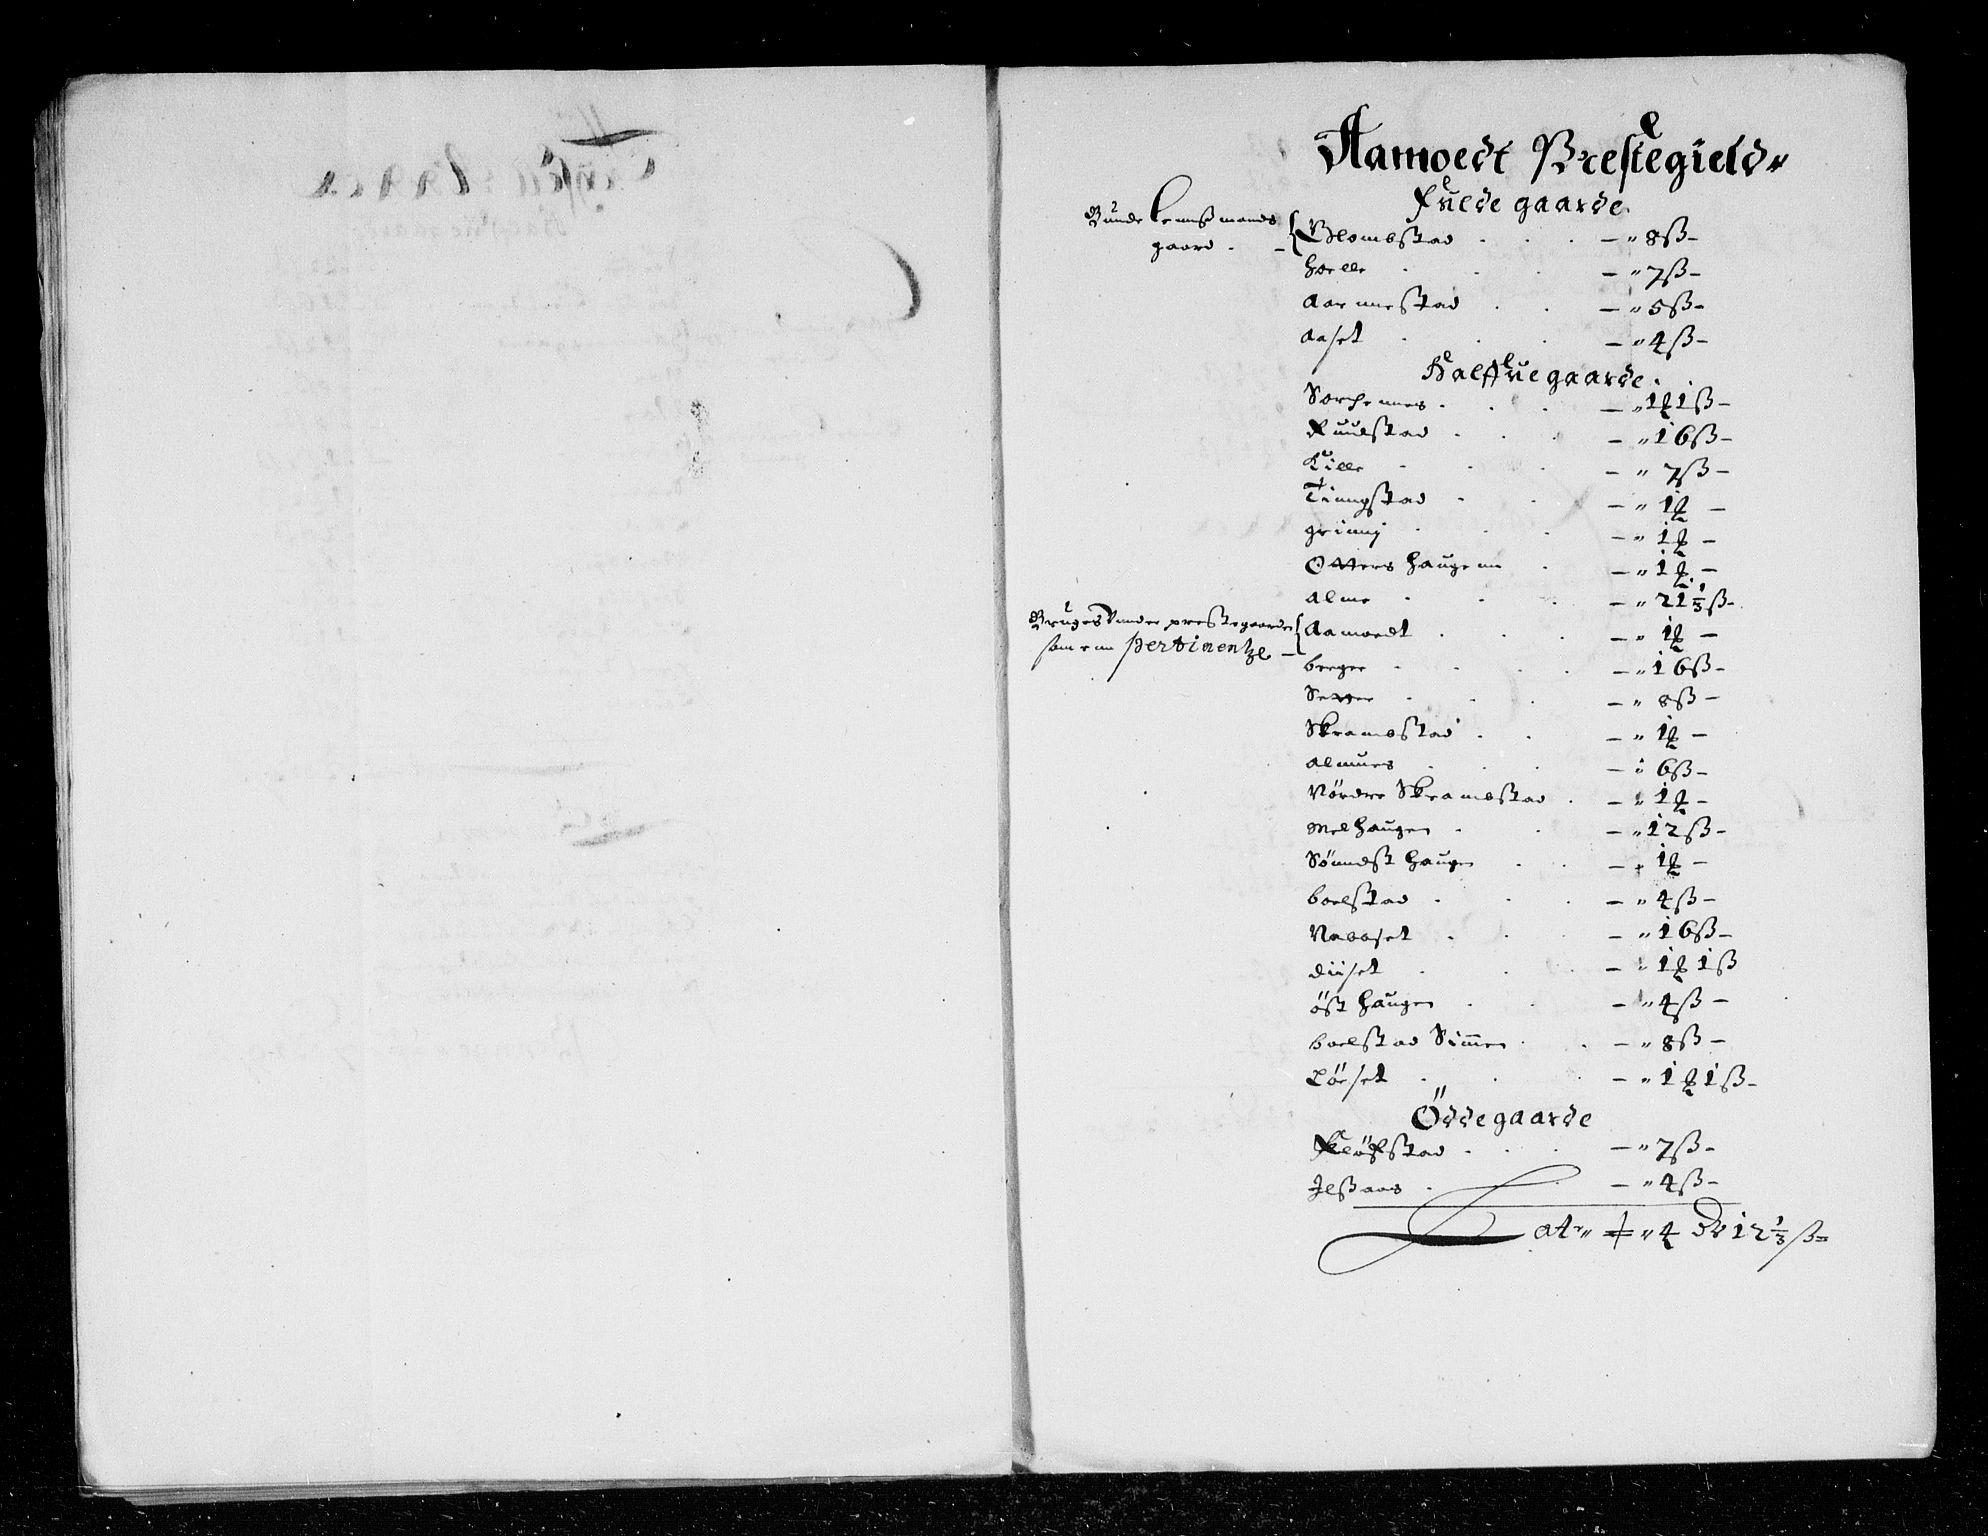 Aamoedt Prestegield
Fulde gaarde
Bunde Lennsmands
gaard
Blombstad - 8 ß
hoelle - 7 ß
Aarnnestad - 5 ß
Aaset - 4 ß
Halffue gaarde
Sorchennes - 1 ℔ 1 ß
Ruudstad - 16 ß
Lille - 7 ß
Tiungstad - 1 ℔
grinnj - 1 ℔
Otters haugenn - 1 ℔
Alme - 21 1/3 ß
Bruges Vnder prestegaarden
som enn pertinentze
Aamoedt - 1 ℔
berger - 16 ß
Setter - 8 ß
Skrambstad - 1 ℔
Almues - 6 ß
Nördre Skrambstad - 1 ℔
Melhaugen - 12 ß
Sönndst haugen - 1 ℔
boelstad - 4 ß
Nabbset - 16 ß
diiset - 1 ℔ 1 ß
öst haugen - 4 ß
boelstad Simen - 8 ß
Löeset - 1 ℔ 1 ß
Öddegaarde
Klöfstad - 7 ß
Ilßaas - 4 ß
Lat 4 12 1/3 ß